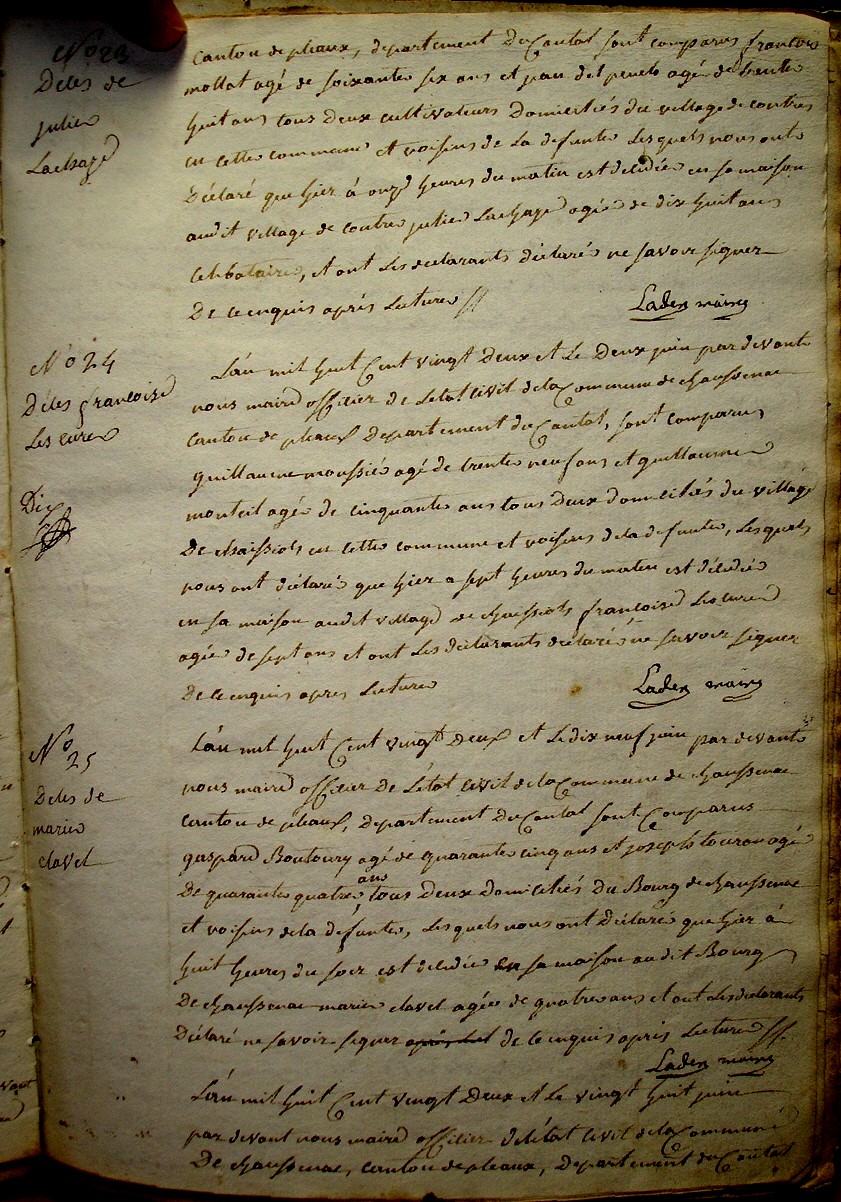 N° 23
Décès de
julie
Lachaze
canton de pleaux, departement du Cantal sont comparus francois
mollat agé de soixante six ans et jean delpeuch agé de trente
huit ans tous deux cultivateurs domiciliés du village de contres
en cette commune et voisins de la defunte lesquels nous ont
Déclaré que hier à onze heures du matin est décédée en sa maison
audit village de contre julie Lachaze agée de dix huit ans
celibataire, et ont les declarants déclarés ne savoir signer
De ce enquis après lecture
Laden maire
N° 24
Décès francoise
Lescure
Dix
L'an mil huit Cent vingt Deux et Le Deux juin par devant
nous maire officier de L'état Civil de la Commune de chaussenac
canton de pleaux Departement du Cantal, sont comparus
guillaume moussié agé de trente neuf ans et guillaume
monteil agé de cinquante ans tous Deux domiciliés du village
De chaissiols en cette commune et voisins de la defunte, Lesquels
nous ont déclaré que hier a sept heures du matin est décédée
en sa maison audit village de chaissiols francoise Lescure
agée de sept ans et ont Les déclarants déclaré ne savoir signer
De ce enquis apres Lecture
Laden maire
N° 25
Décès de
marie
clavel
L'an mil huit Cent vingt deux et Le dix neuf juin par devant
nous maire officier De L'état Civil de la Commune de chaussenac
canton de pleaux, Departement du Cantal sont Comparus
gaspard Boutoury agé de quarante cinq ans et joseph touron agé
ans
De quarante quatre, tous Deux Domiciliés du Bourg de chaussenac
et voisins de la défunte, Lesquels nous ont Déclaré que hier à
huit heures du soir est décédée en sa maison audit Bourg
De chaussenac marie clavel agée de quatre ans et ont Les déclarants
Déclaré ne savoir signer de ce enquis après Lecture
Laden maire
L'an mil huit Cent vingt Deux et Le vingt huit juin
par devant nous maire officier de L'état Civil de la Commune
De chaussenac, canton de pleaux, Departement du Cantal